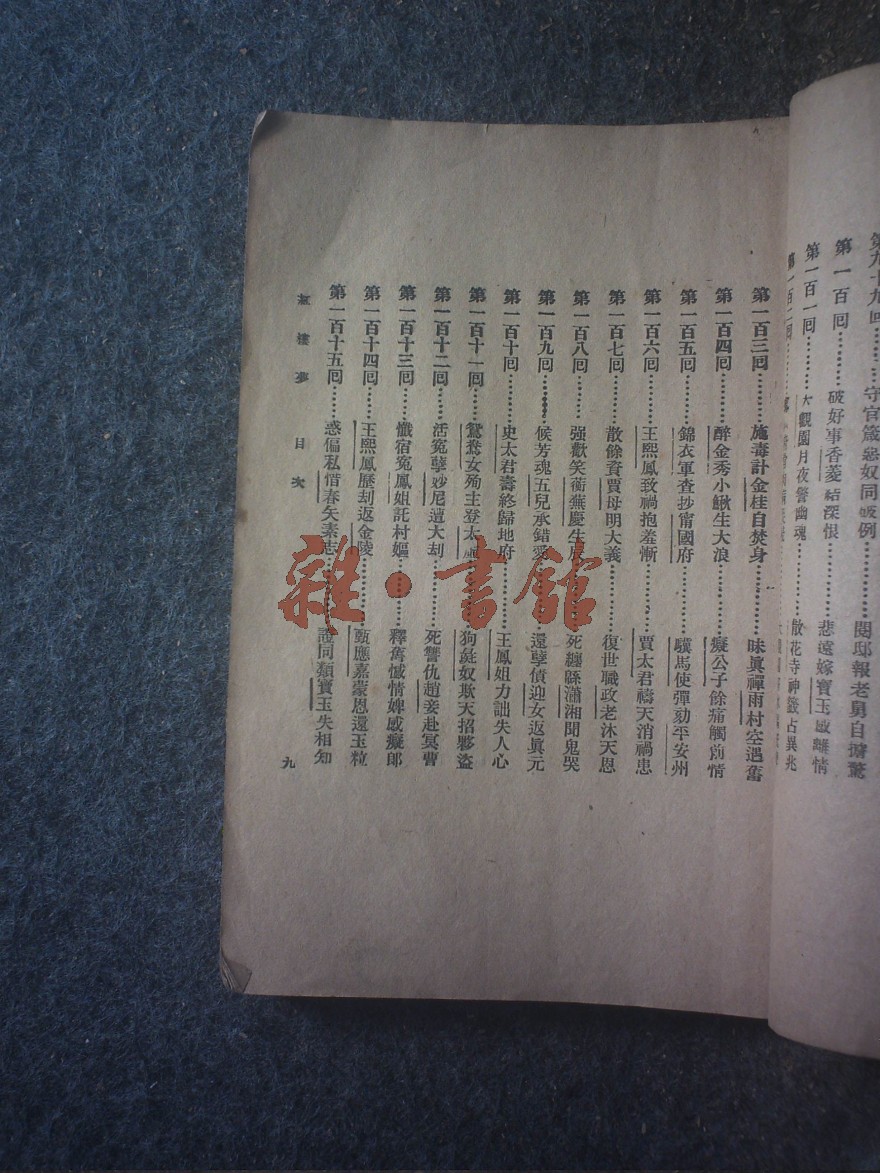 第九十九回………守官箴惡奴同破例 閱邸報老舅自擔驚
第一百回………破好事香菱結深恨 悲遠嫁寶玉感離情
第一百一回………大觀園月夜警幽魂 散花寺神籤占異兆
第一百二回………
第一百三回………施毒計金桂自焚身………昧眞禪雨村空遇舊
第一百四回………醉金秀小鰍生大浪………癡公子餘痛觸前情
第一百五回………錦衣軍查抄甯國府………驥馬使彈劾平安州
第一百六回………王熙鳳致禍抱羞慚………賈太君禱天消禍患
第一百七回………散餘資賈母明大義………復世職政老沐天恩
第一百八回………强歡笑蘅蕪慶生辰………死纏緜瀟湘聞鬼哭
第一百九回………候芳魂五兒承錯愛………還孽債迎女返眞元
第一百十回………史太君壽終歸地府………王鳳姐力詘失人心
第一百十一回……鴛鴦女殉主登太虛………狗彘奴欺天招夥盜
第一百十二回……活冤孽妙尼遭大刦………死讐仇趙妾赴冥曹
第一百十三回……懺宿冤鳳姐託村嫗………釋舊憾情婢感癡郎
第一百十四回……王熙鳳歷刦返金陵………甄應嘉蒙恩還玉粒
第一百十五回……惑偏私惜春矢素志………證同類寶玉失相知
紅樓夢 目次 九
雜·書館